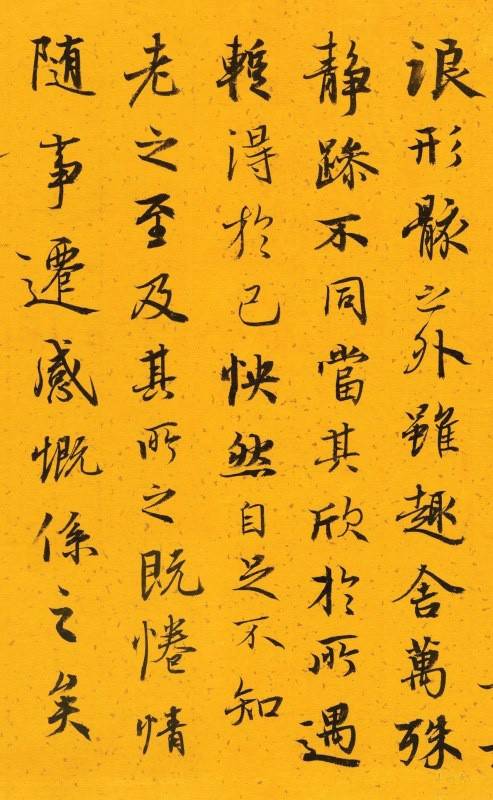 浪形骸之外雖趣舍萬殊
静躁不同當其欣於所遇
暫得於己怏然自足不知
老之至及其所之既惓情
随事遷感慨係之矣